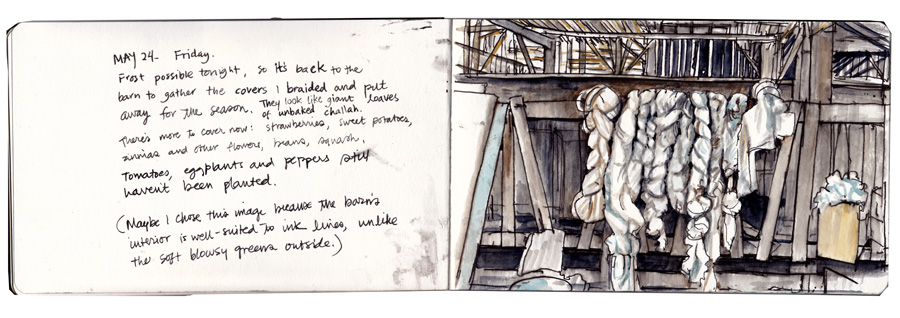 MAY 24 - Friday.
Frost possible tonight, so it's back to the
barn to gather the covers I braided and put
away for the season. They look like giant loaves
of unbaked challah.
There's more to cover now: strawberries, sweet potatoes,
zinnias and other flowers, beans, squash.
Tomatoes, eggplants and peppers still
haven't been planted.
(Maybe I chose this image because the barn's
interior is well-suited to ink lines, unlike
the soft blowsy greens outside.)